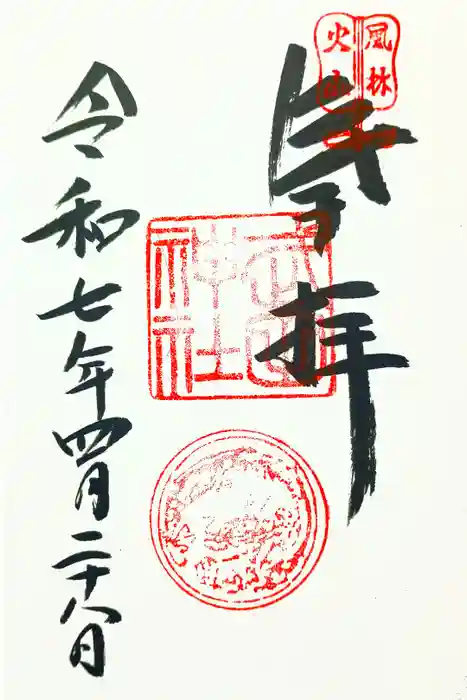 風林
火山
拝
武田
神社
令和七年四月二十八日